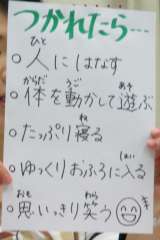 つかれたら…
○人にはなす
○体を動かして遊ぶ
○たっぷり寝る
○ゆっくりおふろに入る
○思いっきり笑う